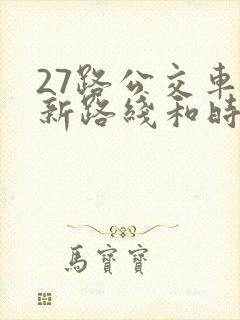 27路公交車
新路綫和時
馬寶寶